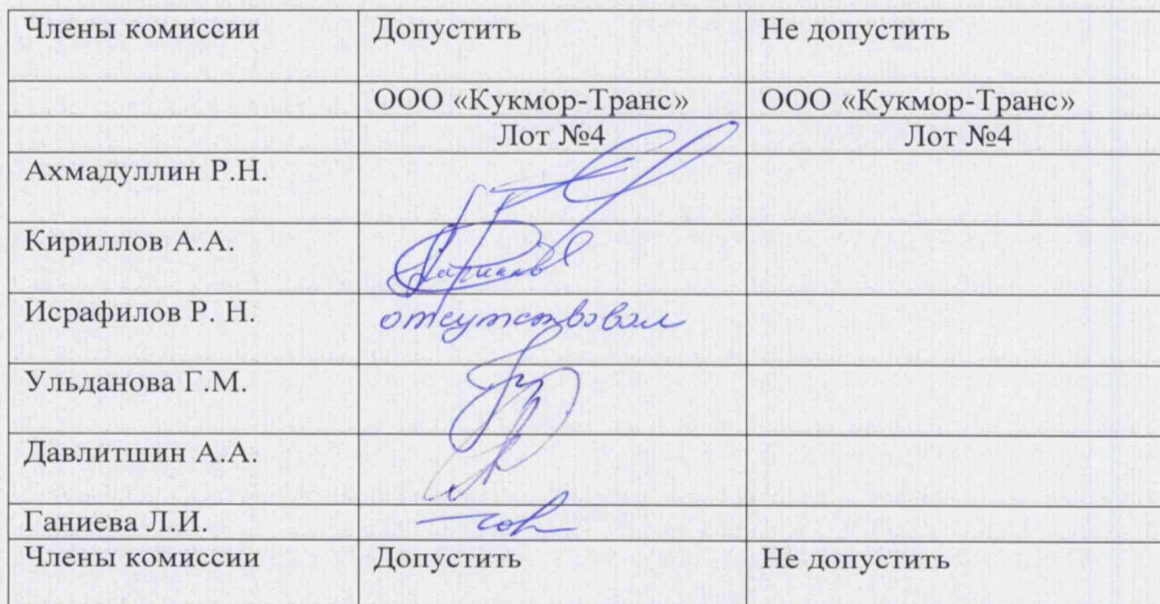 Члены комиссии Допустить Не допустить
ООО «Кукмор-Транс» ООО «Кукмор-Транс»
Лот №4 Лот №4
Ахмадуллин Р.Н.
Кириллов А.А.
Исрафилов Р. Н. отсутствовал
Ульданова Г.М.
Давлитшин А.А.
Ганиева Л.И.
Члены комиссии Допустить Не допустить